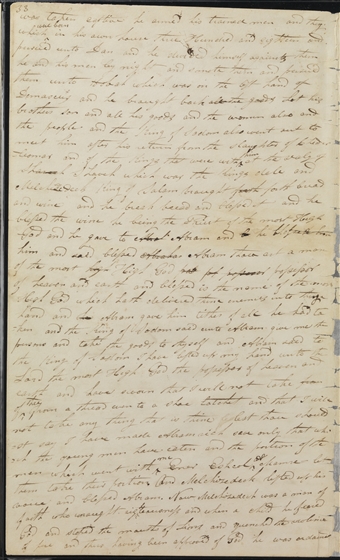 33
was taken captive he armed his trained men and they
which in his own house three hundred and eighteen and
pursued unto Dan and he divided himself against them
he and his men in night and smote them and pursued
them unto Hobah which was on the left hand of
Damascus and he brought back the goods Lot his
brothers son and all his goods and the women also and
the people and the King of Sodom also went out to
meet him after his return from the slaughter of
and of the Kings that were with him at the valey of
Shaveh which was the Kings dale and
Melchizedeck King of Salem brought forth bread
and wine and he break bread and blest it and he
blessed the wine he being the Priest of the most High
God and he gave to Abram and he
him and said blessed Abram thou art a man
of the most High God possessor
of heaven and earth and blessed is the name of the most
High God which hath delivered thine enemies into thine
hand and Abram gave him tithes of all he had ta
ken and the King of Sodom said unto Abram give me the
persons and take the goods to thyself and Abram said to
the King of Sodom I have lifted up my hand unto the
Lord the most High God the possessor of heaven and
earth and have sworn that I will not take from
thee from a thread unto a shoe latchet and that I will
not take any thing that is thine lest thou should
not say I have made Abram rich save only that which
the young men have eaten and the portion of the
men which went with me Aner Eshcol & Mamre let
them take their portion and Melchizedeck lifted up his
voice and blessed Abram Now Melchizedeck was a man of
faith who wraught righteousness and when a child he feared
God and stoped the mouths of Lions and quenched the violence
of fire and thus having been approved of God he was ordained